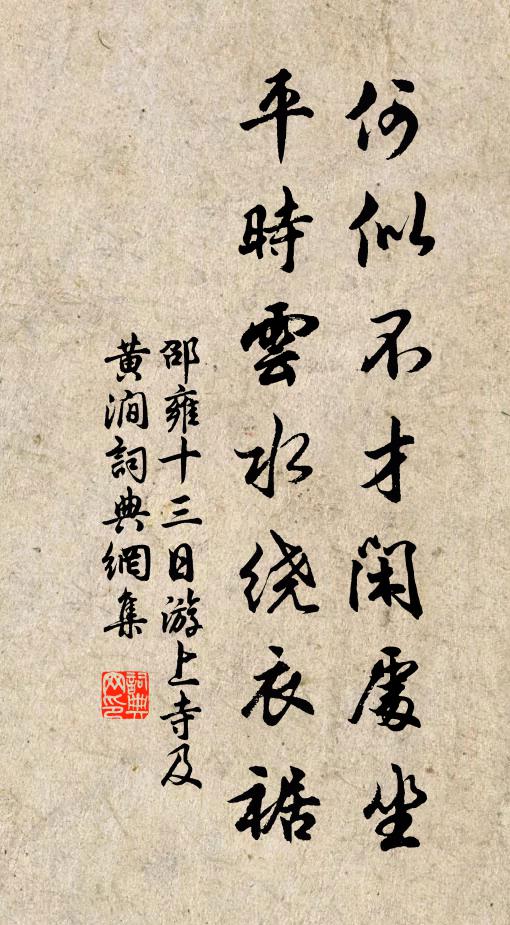 何似不才閑處坐
平時雲水繞衣裾
邵雍十三日游上寺及
黃澗詞典網集
詞典
网印